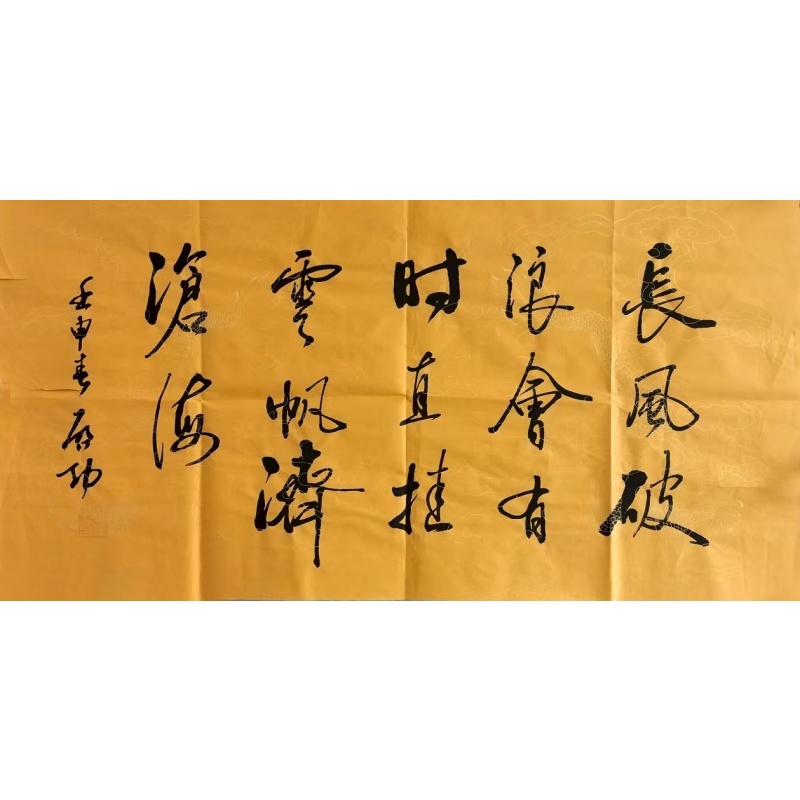 長風破
浪會有
时直挂
雲帆濟
滄海
壬申春 启功